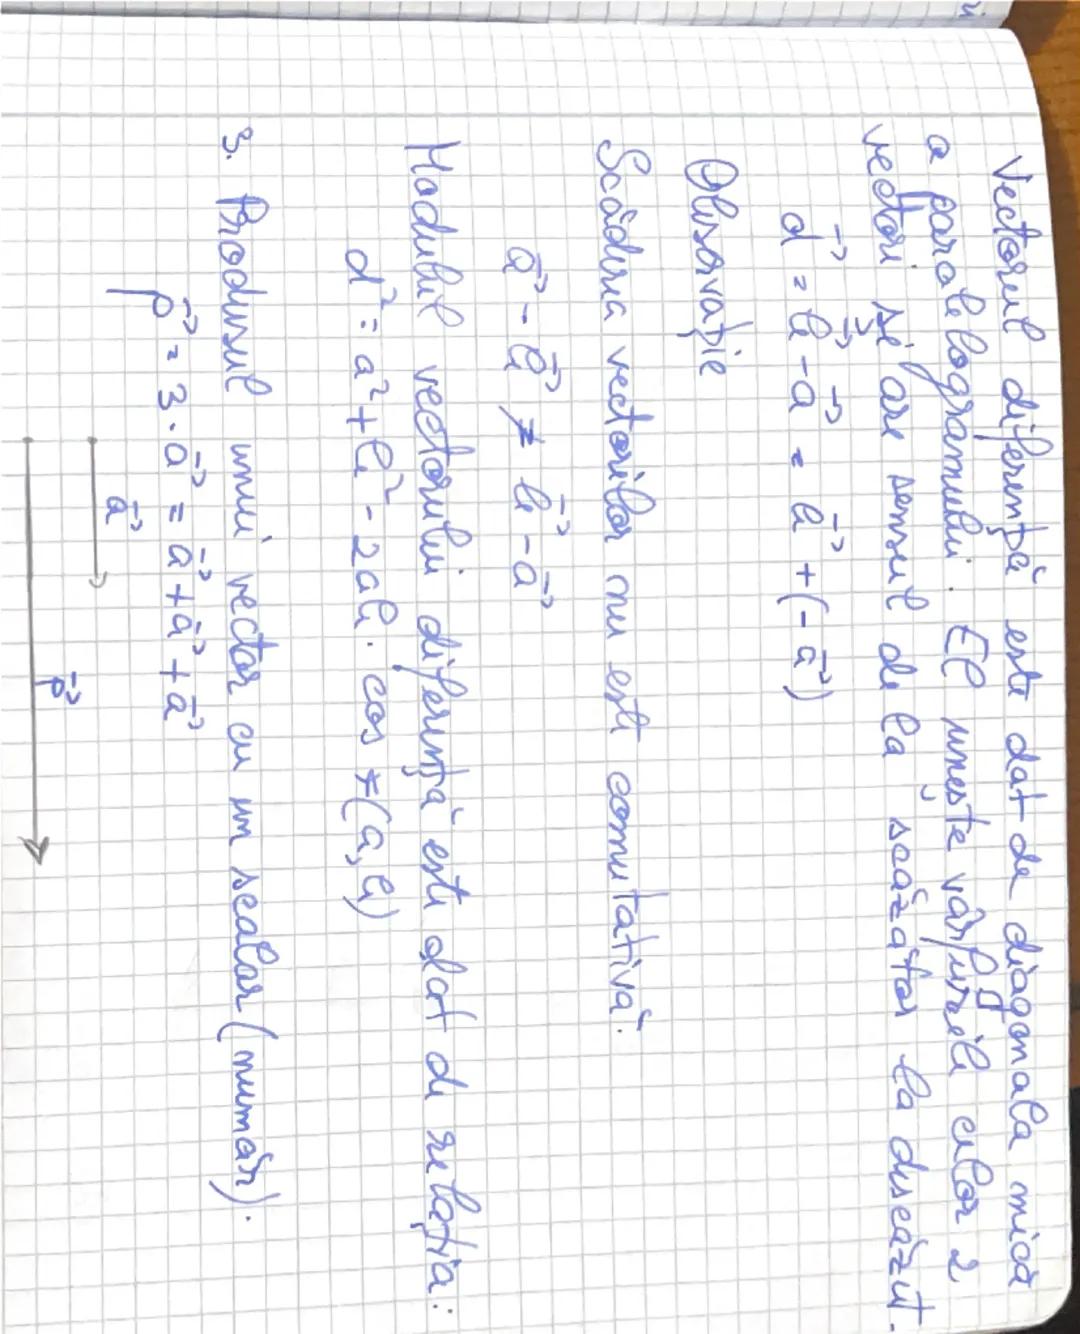 Vectorul diferență este dat de diagonala mică
a paralelogramului. El unește vârfurile celor 2
vectori și are sensul de la scăzător la descăzut.
d⃗ = b⃗ - a⃗ = b⃗ + (-a⃗)
Observație
Scăderea vectorilor nu este comutativă.
a⃗ - b⃗ ≠ b⃗ - a⃗
Modulul vectorului diferență este dat de relația:
d² = a² + b² - 2ab · cos ∢(a, b)
3. Produsul unui vector cu un scalar (număr).
p⃗ = 3 · a⃗ = a⃗ + a⃗ + a⃗
a⃗
p⃗